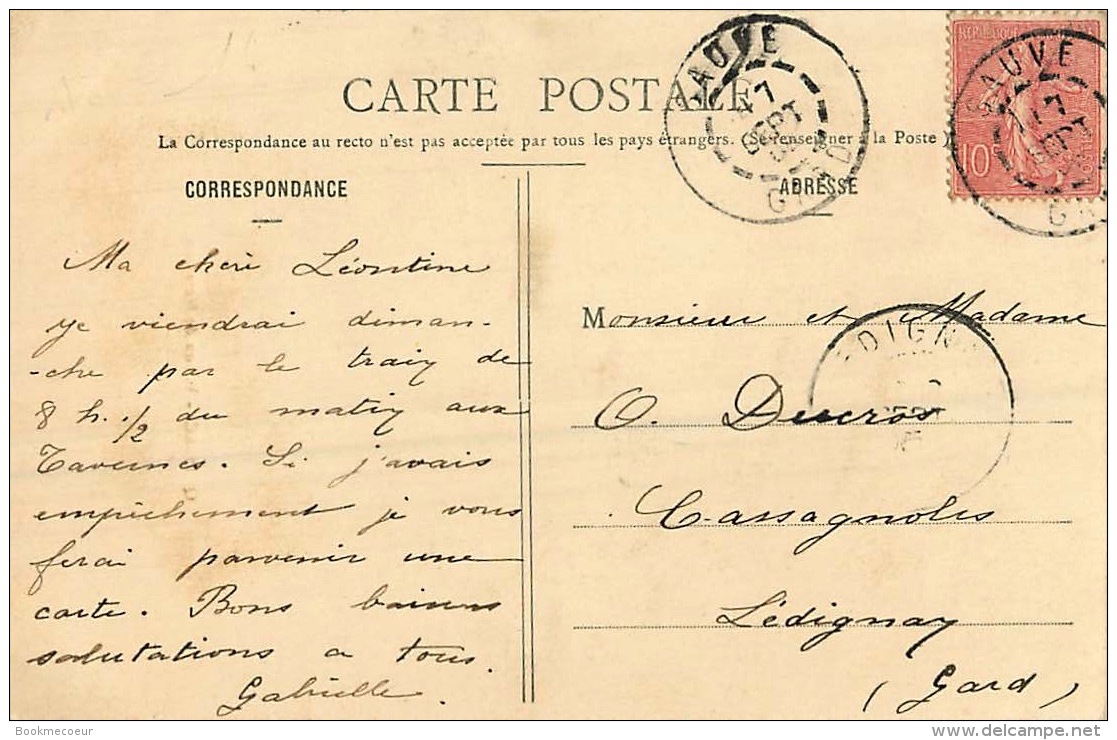 CARTE POSTALE
La Correspondance au recto n'est pas acceptée par tous les pays étrangers. (Se renseigner à la Poste)
CORRESPONDANCE
Ma chère Léontine
je viendrai diman-
-che par le train de
8 h. 1/2 du matin aux
Tavernes. Si j'avais
empêchement je vous
ferai parvenir une
carte. Bons baisers
salutations a tous.
Gabrielle.
ADRESSE
Monsieur et Madame
O. Ducros
Cassagnoles
Lédignan
(Gard)
SAUVE
SEPT
GARD
SAUVE
SEPT
10
EDIGN
Bookmecoeur
delcampe.net